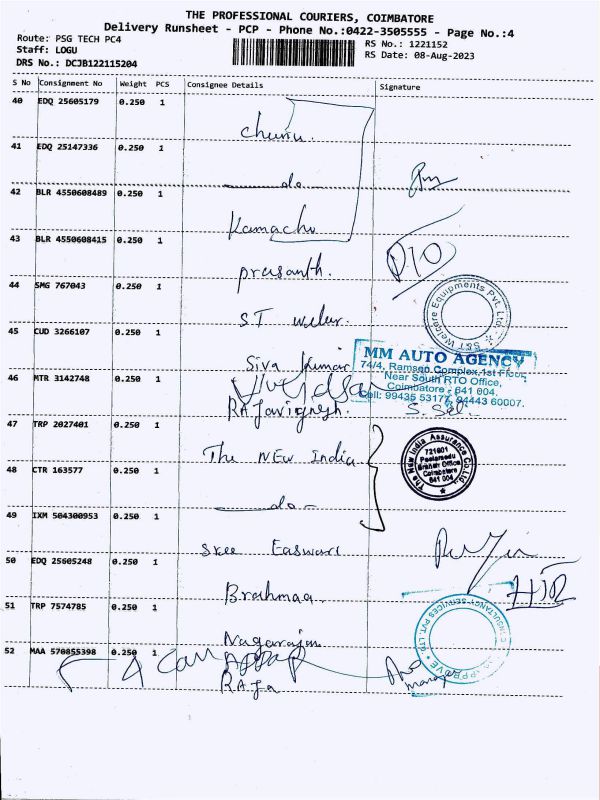 THE PROFESSIONAL COURIERS, COIMBATORE
Delivery Runsheet - PCP - Phone No.:0422-3505555 - Page No.:4
Route: PSG TECH PC4
RS No.: 1221152
Staff: LOGU
RS Date: 08-Aug-2023
DRS No.: DCJB122115204
S No Consignment No Weight PCS Consignee Details Signature
40 EDQ 25605179 0.250 1
41 EDQ 25147336 0.250 1
do
42 BLR 4550608489 0.250 1
43 BLR 4550608415 0.250 1
prasanth.
44 SMG 767043 0.250 1
S&T Welcare Equipments Pvt. Ltd.
45 CUD 3266107 0.250 1
Siva Kumar
MM AUTO AGENCY
74/4, Ramson Complex, 1st Floor,
Near South RTO Office,
Coimbatore - 641 004.
Cell: 99435 53177, 94443 60007.
46 MTR 3142748 0.250 1
47 TRP 2027401 0.250 1
The New India
The New India Assurance Co. Ltd.
721601
Peelamedu
Branch Office
Coimbatore
641 004
48 CTR 163577 0.250 1
do
49 IXM 504300953 0.250 1
Sree Easwari
50 EDQ 25605248 0.250 1
Brahmaa
51 TRP 7574785 0.250 1
Nagarajan
CONSULTANCY SERVICES PVT. LTD.
52 MAA 570855398 0.250 1
RAja
manager